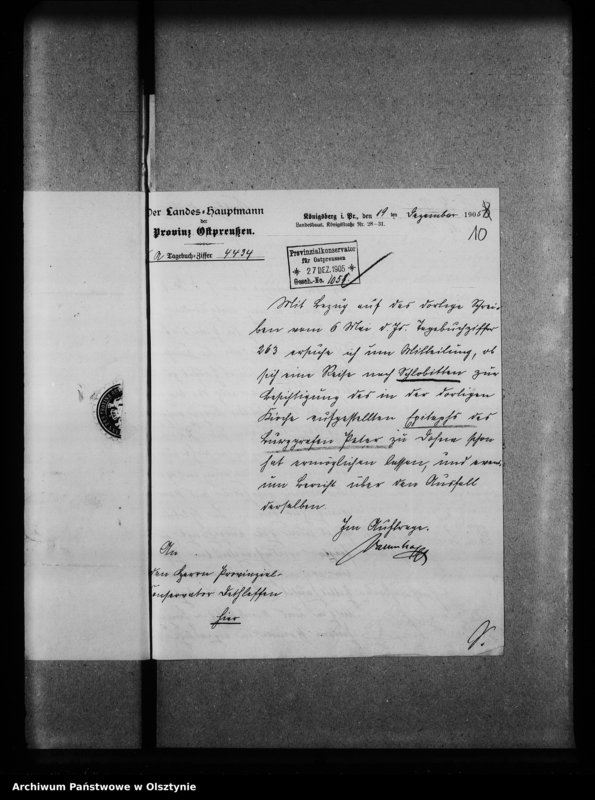 Der Landes-Hauptmann
der
Provinz Ostpreußen.
Tagebuch-Ziffer 4434
Königsberg i. Pr., den 19 ten Dezember 1905
Landeshaus, Königstraße Nr. 28-31.
10
Provinzialkonservator
für Ostpreussen
27 DEZ. 1905
Gesch.-No. 1058
Mit Bezug auf das dortige Schrei-
ben vom 6 Mai d. Js. Tagebuchziffer
263 ersuche ich um Mitteilung, ob
sich eine Reise nach Schlobitten zur
Besichtigung des in der dortigen
Kirche aufgestellten Epitaphs des
Burggrafen Peter zu Dohna schon
hat ermöglichen lassen, und
um Bericht über den Ausfall
derselben.
Im Auftrage.
An
den Herrn Provinzial-
Conservator Dethlefsen
hier
Archiwum Państwowe w Olsztynie